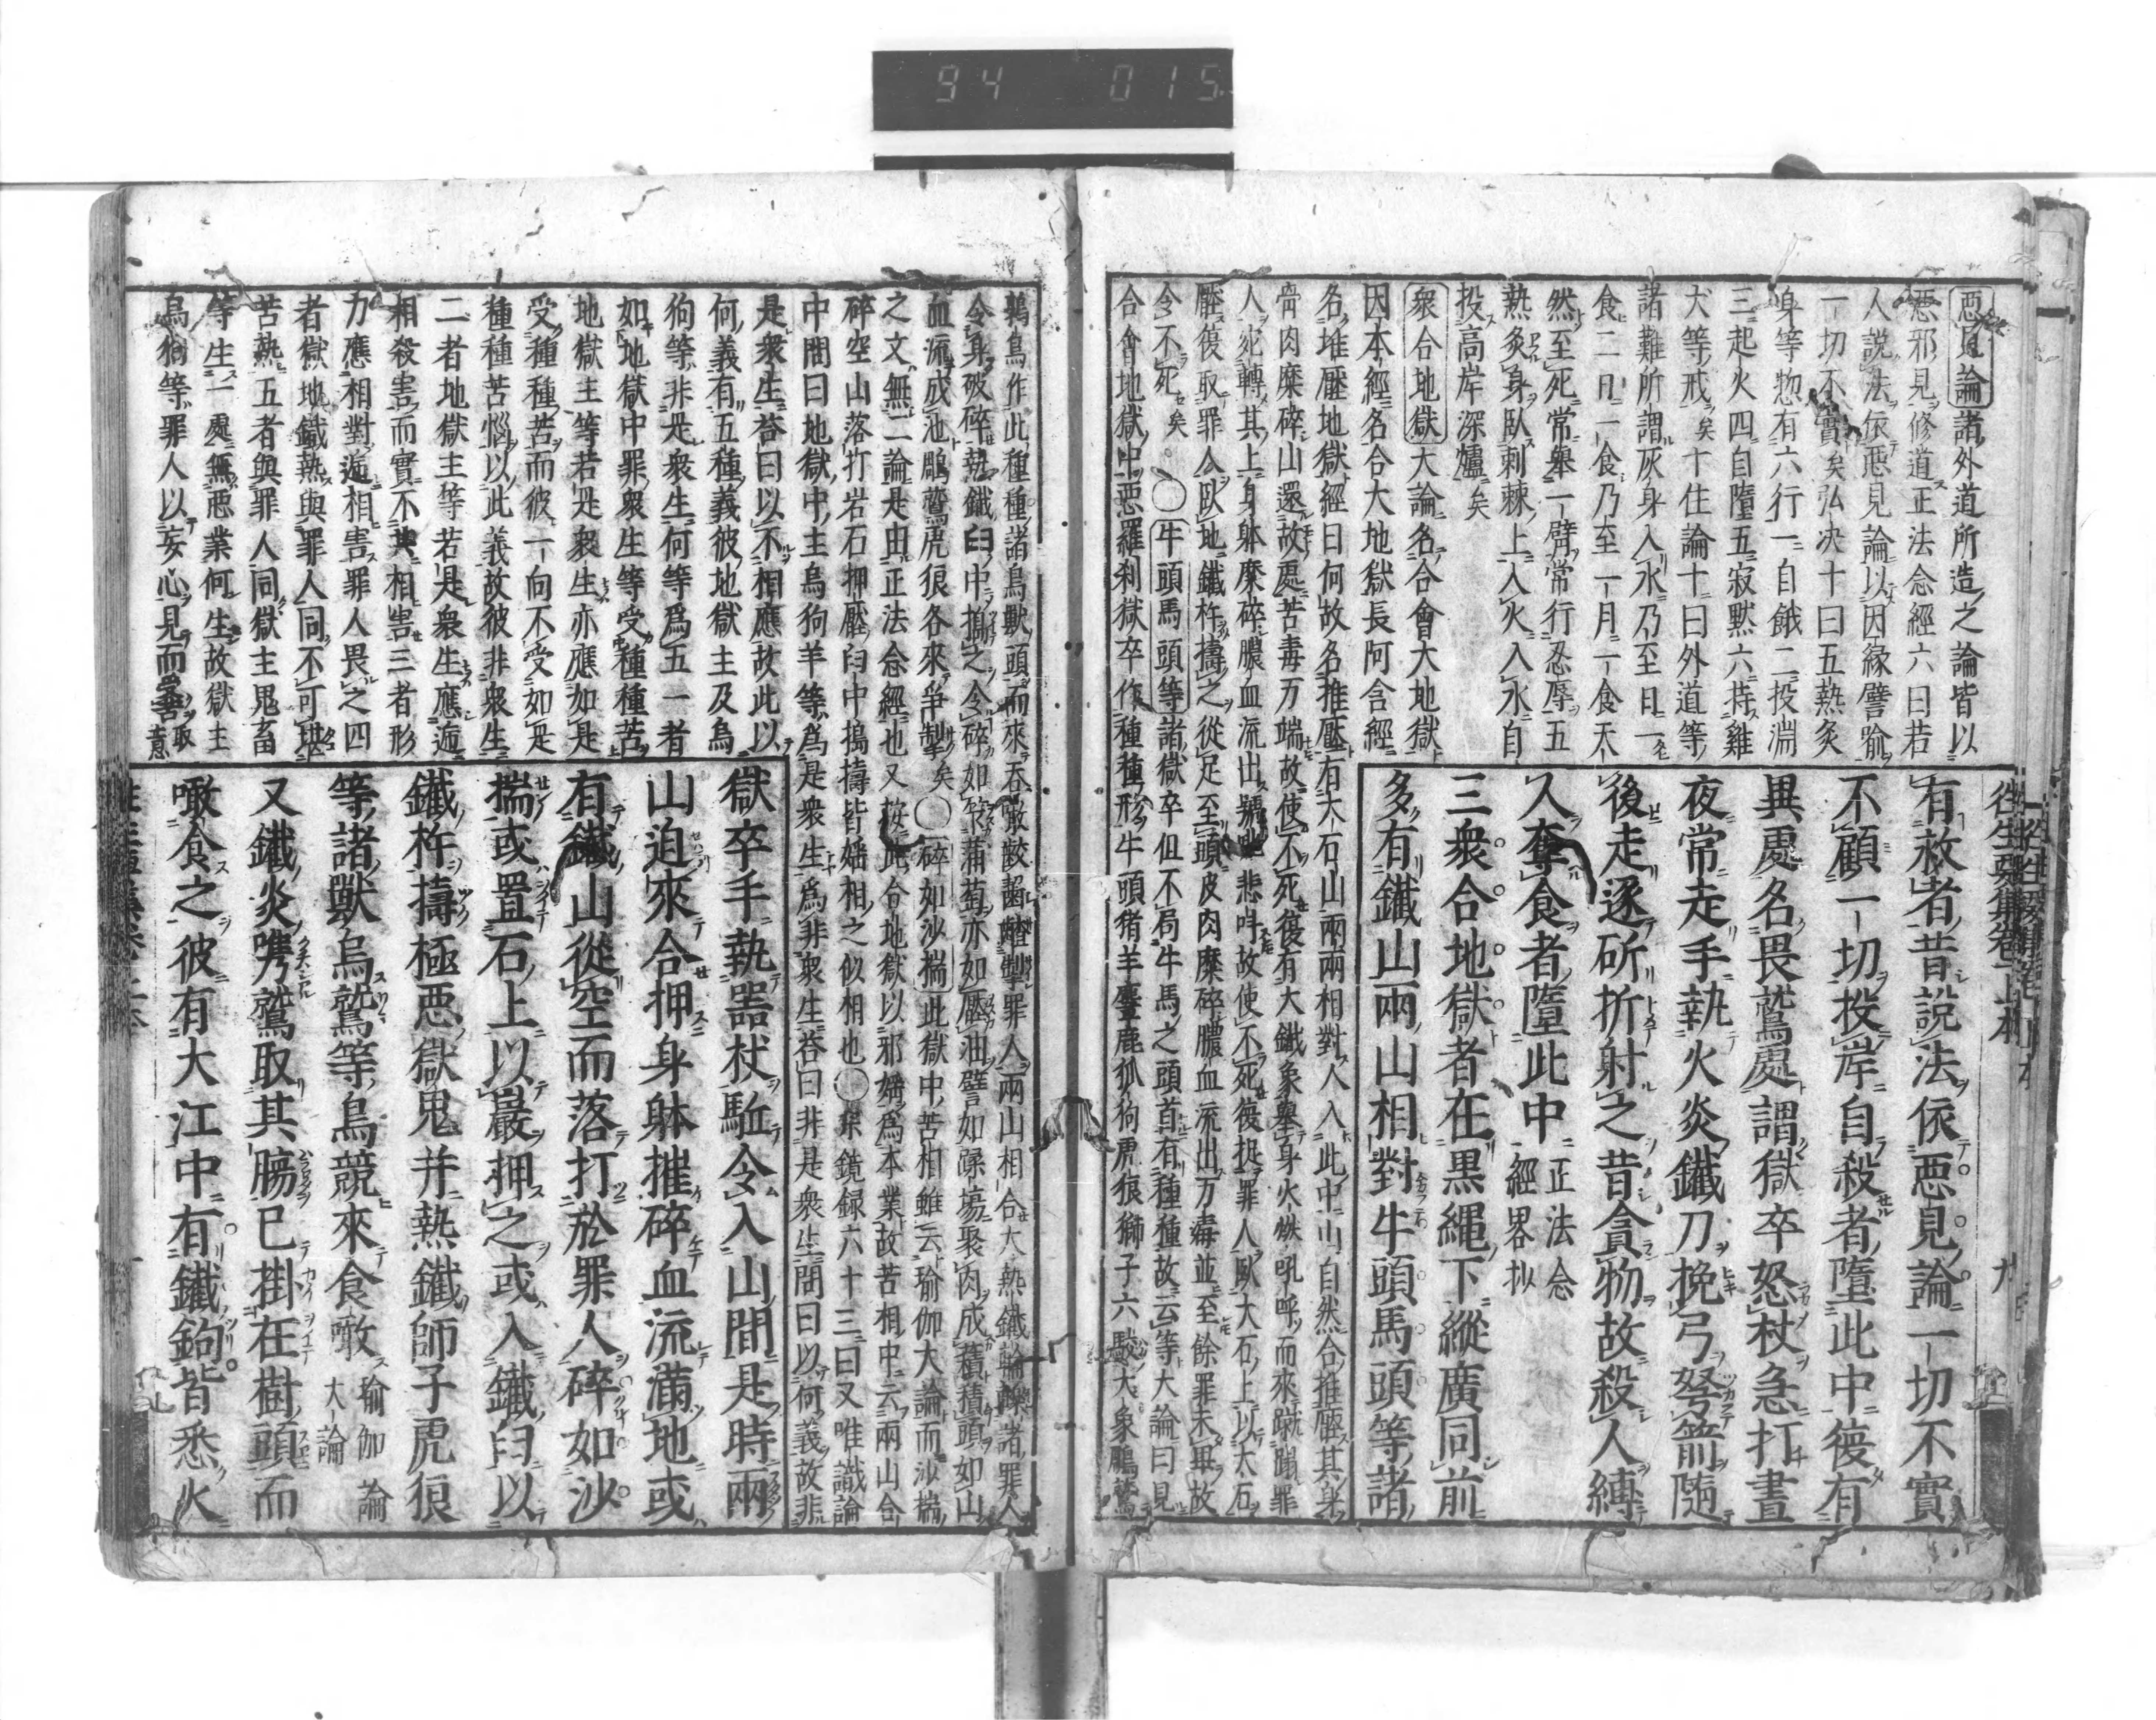 94 015
往生要集卷上本
惡見論諸外道所造之論皆以
惡邪見修道正法念經六曰若
人說法依惡見論以因緣譬喻
一切不實矣弘決十曰五熱炙
身等惣有六行一自餓二投淵
三起火四自墮五寂默六持雞
犬等戒矣十住論十曰外道等
諸難所謂灰身入水乃至日一
食二日一食乃至一月一食天
然至死常舉一臂常行忍辱五
熱炙身臥刺棘上入火入水自
投高岸深爐矣
衆合地獄大論名合會大地獄
因本經名合大地獄長阿含經
名堆壓地獄經曰何故名推壓有大石山兩兩相對人入此中山自然合推壓其身
骨肉糜碎山還故處苦毒万端故使不死復有大鐵象舉身火燃吼呼而來蹴蹋罪
人宛轉其上身躰糜碎膿血流出號咷悲呌故使不死復捉罪人臥大石上以大石
壓復取罪人臥地鐵杵擣之從足至頭皮肉糜碎膿血流出万毒並至餘罪未畢故
令不死矣○牛頭馬頭等諸獄卒但不局牛馬之頭首有種種故云等大論曰見
合會地獄中惡羅刹獄卒作種種形牛頭猪羊麞鹿狐狗虎狼獅子六駮大象鵬鷲
有救者昔說法依惡見論一切不實
不顧一切投岸自殺者墮此中復有
異處名畏鷲處謂獄卒怒杖急打晝
夜常走手執火炎鐵刀挽弓弩箭隨
後走逐斫折射之昔貪物故殺人縛
人奪食者墮此中正法念經界抄
三衆合地獄者在黑繩下縱廣同前
多有鐵山兩山相對牛頭馬頭等諸
鶉鳥作此種種諸鳥獸頭而來吞噉齩齧㯿掣罪人兩山相合大熱鐵輪轢諸罪人
令身破碎熱鐵臼中擣之令碎如笮蒲萄亦如壓油譬如蹂場聚肉成積頭如山
血流成池鵰鷲虎狼各來爭掣矣○碎如沙揣此獄中苦相雖云瑜伽大論而沙揣
之文無二論是由正法念經也又按此合地獄以邪婬爲本業故苦相中云兩山合
碎空山落打岩石押壓臼中搗擣皆婬相之似相也○環鏡録六十三曰又唯識論
中問曰地獄中主烏狗羊等爲是衆生爲非衆生荅曰非是衆生問曰以何義故非
是衆生荅曰以不相應故此以
何義有五種義彼地獄主及烏
狗等非是衆生何等爲五一者
如地獄中罪衆生等受種種苦
地獄主等若是衆生亦應如是
受種種苦而彼一向不受如是
種種苦惱以此義故彼非衆生
二者地獄主等若是衆生應遞
相殺害而實不共相害三者形
力應相對遞相害罪人畏之四
者獄地鐵熱與罪人同不可堪
苦熱五者與罪人同獄主鬼畜
等生一處無惡業何生故獄主
烏狗等罪人以妄心見而善取意
獄卒手執器杖駈令入山間是時兩
山迫來合押身躰摧碎血流滿地或
有鐵山從空而落打於罪人碎如沙
揣或置石上以巖押之或入鐵臼以
鐵杵擣極惡獄鬼并熱鐵師子虎狼
等諸獸烏鷲等鳥競來食噉瑜伽論大論
又鐵炎嘴鷲取其腸已掛在樹頭而
噉食之彼有大江中有鐵鉤皆悉火